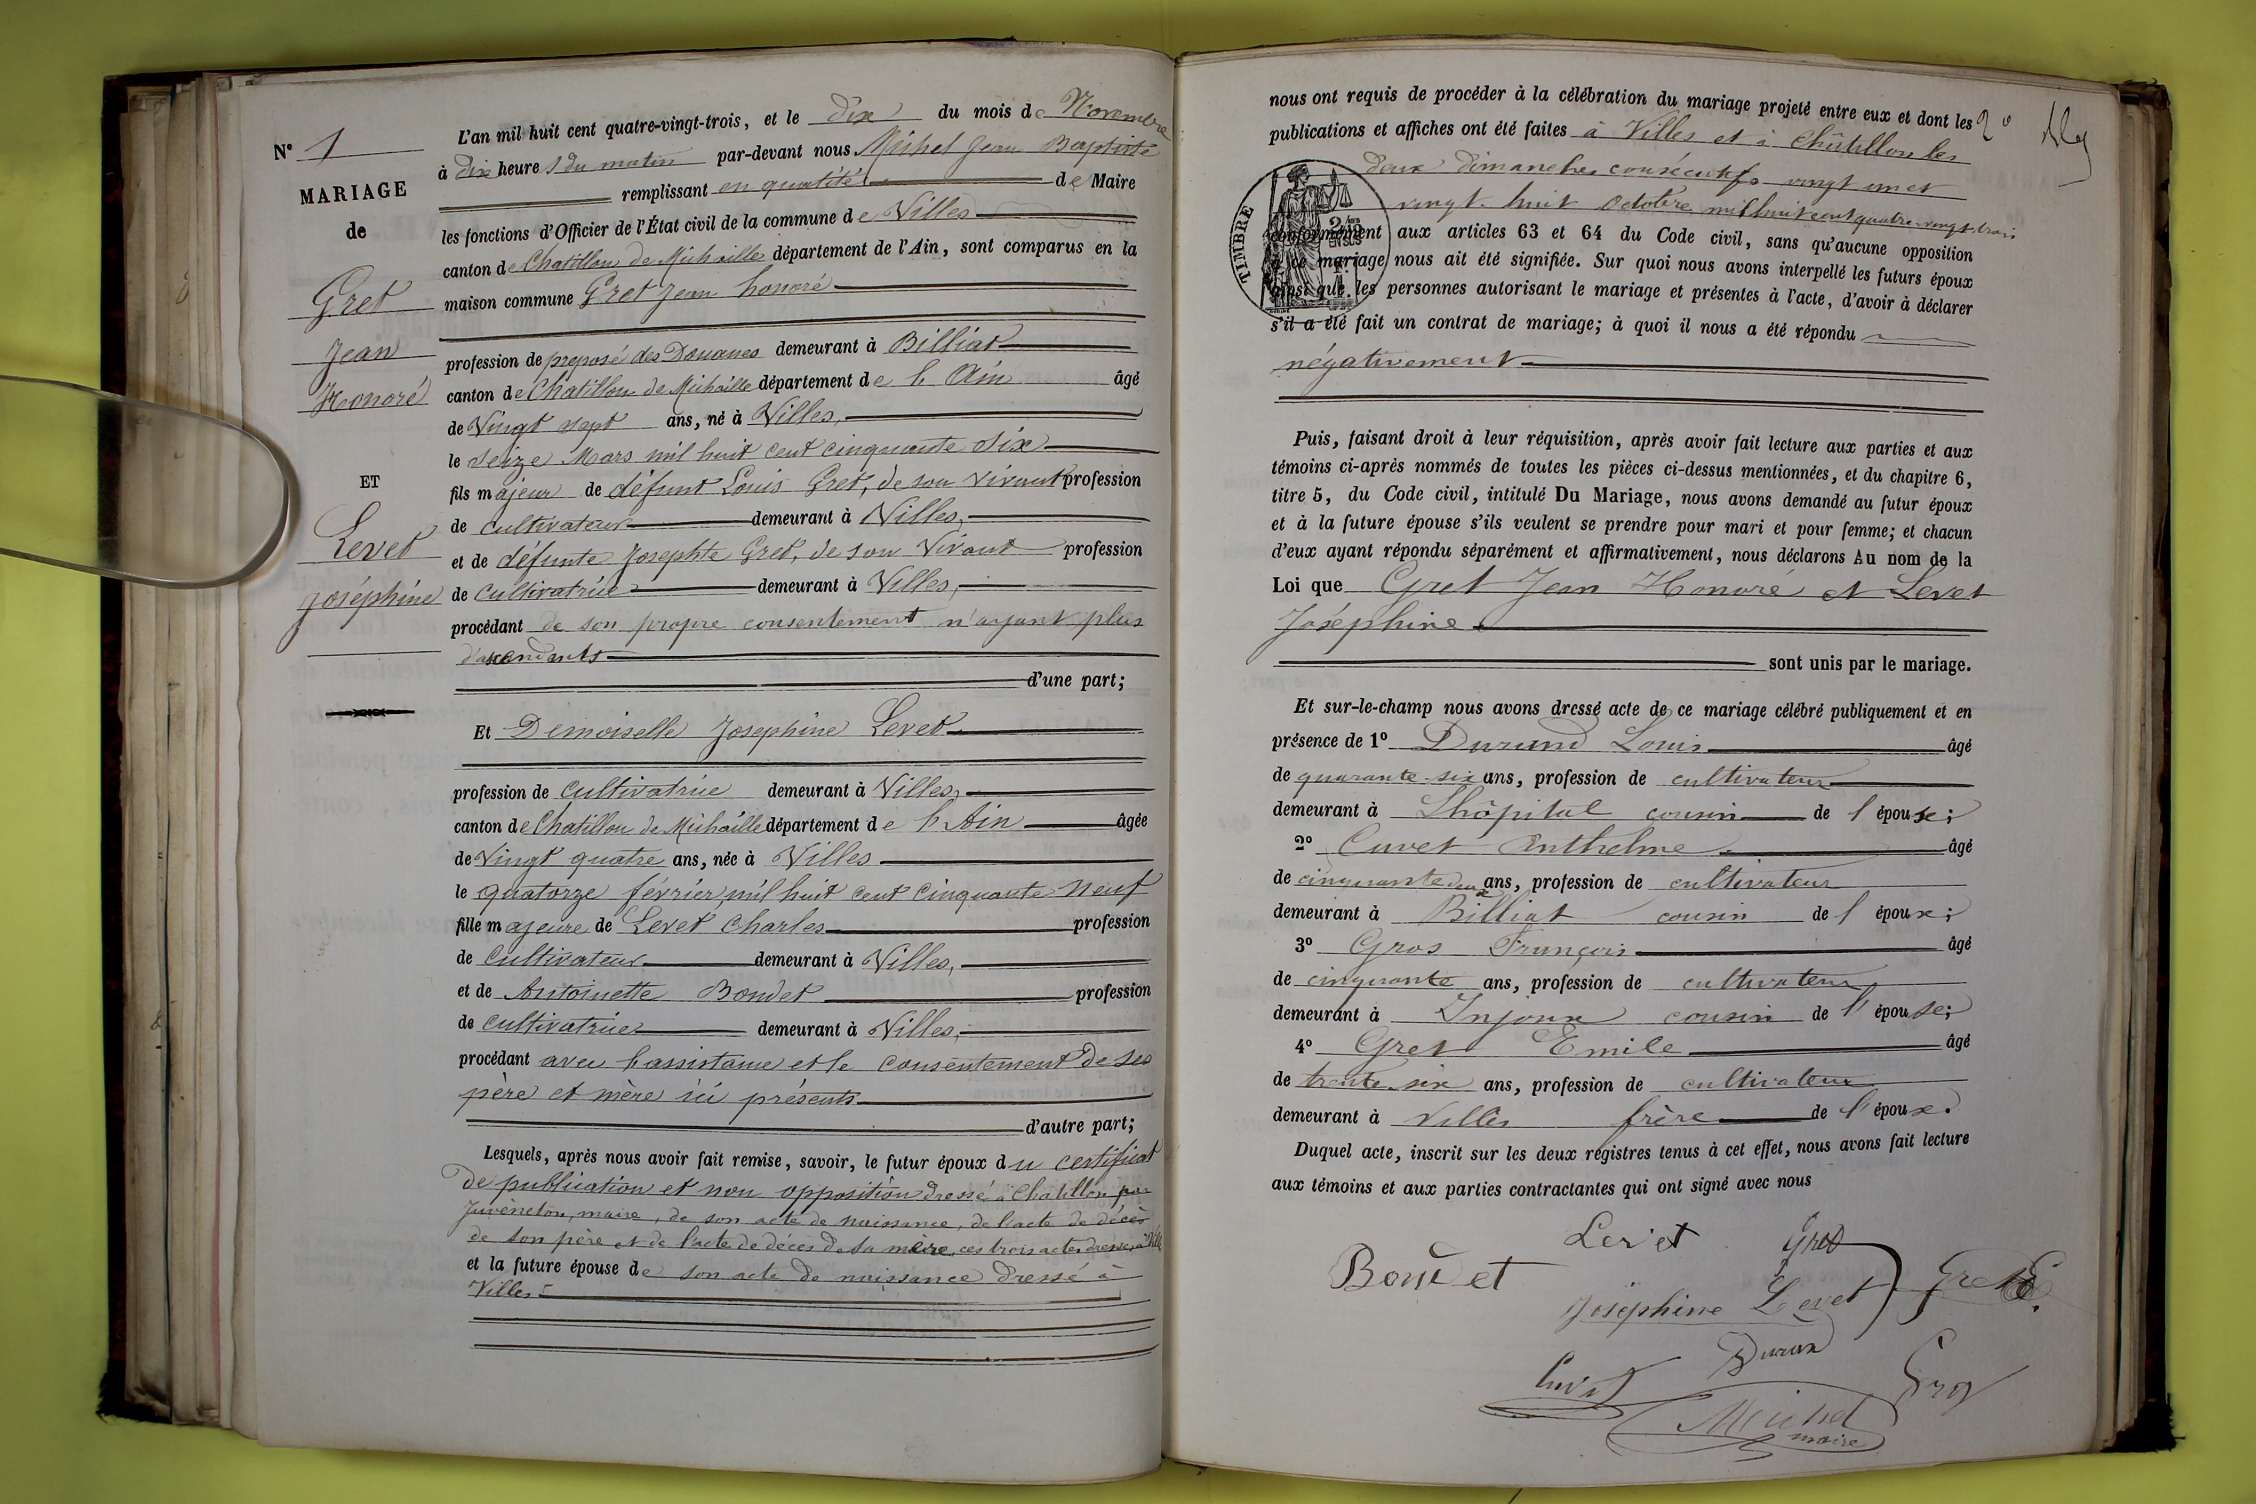 N° 1
MARIAGE
de
Gret
Jean
Honoré
ET
Levet
Joséphine
L'an mil huit cent quatre-vingt-trois, et le dix du mois de Novembre
à dix heures du matin par-devant nous Michel Jean Baptiste
remplissant en qualité de Maire
les fonctions d'Officier de l'État civil de la commune de Villes
canton de Chatillon de Michaille département de l'Ain, sont comparus en la
maison commune Gret Jean honoré
profession de preposé des Douanes demeurant à Billiat
canton de Chatillon de Michaille département de l'Ain âgé
de Vingt sept ans, né à Villes,
le seize Mars mil huit cent cinquante six
fils majeur de défunt Louis Gret, de son vivant profession
de cultivateur demeurant à Villes,
et de défunte Josephte Gret, de son vivant profession
de cultivatrice demeurant à Villes,
procédant de son propre consentement n'ayant plus
d'ascendants
d'une part;
Et Demoiselle Josephine Levet
profession de cultivatrice demeurant à Villes,
canton de Chatillon de Michaille département de l'Ain âgée
de Vingt quatre ans, née à Villes
le quatorze février mil huit cent cinquante neuf
fille majeure de Levet Charles profession
de cultivateur demeurant à Villes,
et de Antoinette Boudet profession
de cultivatrice demeurant à Villes,
procédant avec l'assistance et le consentement de ses
père et mère ici présents
d'autre part;
Lesquels, après nous avoir fait remise, savoir, le futur époux du certificat
de publication et non opposition dressé à Châtillon par
maire, de son acte de naissance, de l'acte de décès
de son père et de l'acte de décès de sa mère, ces trois actes dressés à Villes
et la future épouse de son acte de naissance dressé à
Villes
nous ont requis de procéder à la célébration du mariage projeté entre eux et dont les
publications et affiches ont été faites à Villes et à Châtillon les
deux dimanches consécutifs vingt un et
vingt huit octobre mil huit cent quatre vingt trois
TIMBRE
conformément aux articles 63 et 64 du Code civil, sans qu'aucune opposition
à ce mariage nous ait été signifiée. Sur quoi nous avons interpellé les futurs époux
ainsi que les personnes autorisant le mariage et présentes à l'acte, d'avoir à déclarer
s'il a été fait un contrat de mariage; à quoi il nous a été répondu
négativement
Puis, faisant droit à leur réquisition, après avoir fait lecture aux parties et aux
témoins ci-après nommés de toutes les pièces ci-dessus mentionnées, et du chapitre 6,
titre 5, du Code civil, intitulé Du Mariage, nous avons demandé au futur époux
et à la future épouse s'ils veulent se prendre pour mari et pour femme; et chacun
d'eux ayant répondu séparément et affirmativement, nous déclarons Au nom de la
Loi que Gret Jean Honoré et Levet
Joséphine
sont unis par le mariage.
Et sur-le-champ nous avons dressé acte de ce mariage célébré publiquement et en
présence de 1° Durand Louis âgé
de quarante six ans, profession de cultivateur
demeurant à Lhôpital cousin de l'épouse;
2° Cuvet Anthelme âgé
de cinquante deux ans, profession de cultivateur
demeurant à Billiat cousin de l'époux;
3° Gros François âgé
de cinquante ans, profession de cultivateur
demeurant à Injoux cousin de l'épouse;
4° Gret Emile âgé
de trente six ans, profession de cultivateur
demeurant à Villes frère de l'époux.
Duquel acte, inscrit sur les deux registres tenus à cet effet, nous avons fait lecture
aux témoins et aux parties contractantes qui ont signé avec nous
Levet Gret
Boudet Gret E.
Joséphine Levet
Duran
Cuvet Gros
Michel
maire